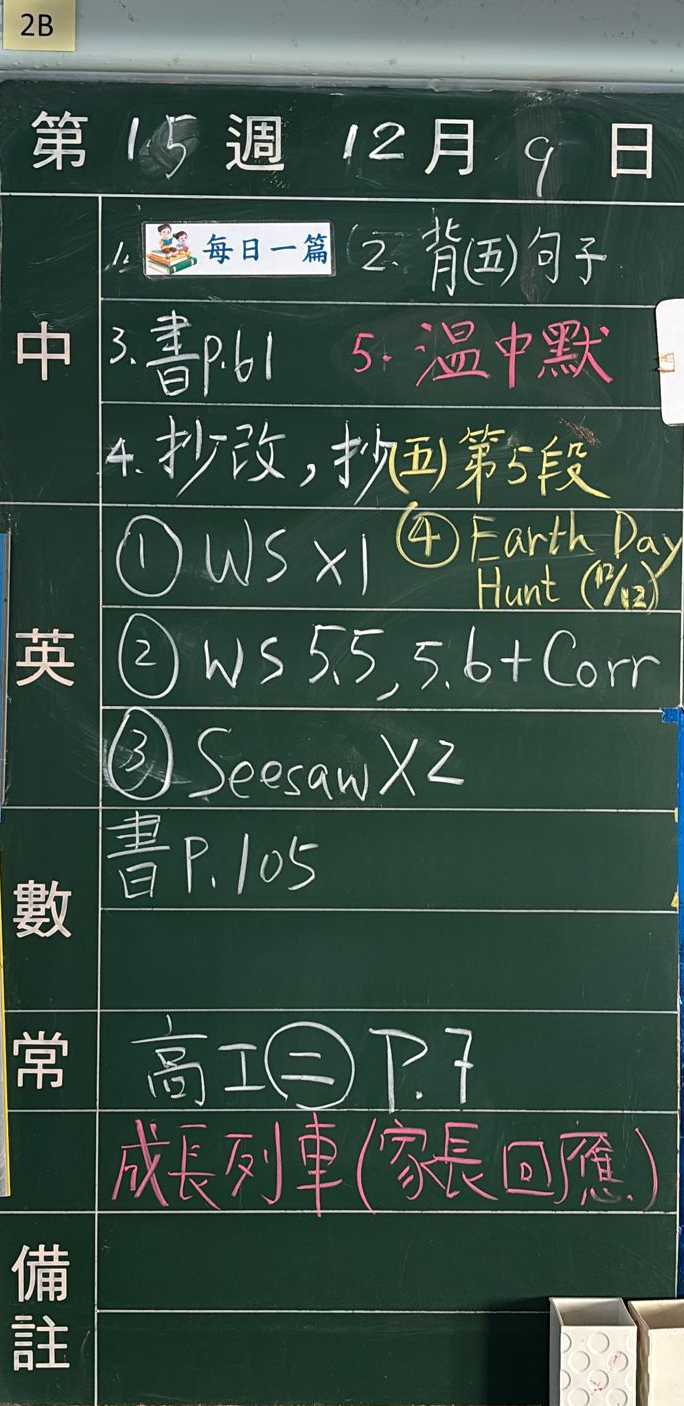 2B
第15週 12月9日
中
1. 每日一篇 2. 背(五)句子
3. 書P.61 5. 溫中默
4. 抄改,抄(五)第5段
英
① WS X1 ④ Earth Day
Hunt (12/12)
② WS 5.5, 5.6+Corr
③ Seesaw X2
數
書P.105
常
高工㊁ P.7
成長列車(家長回應)
備註